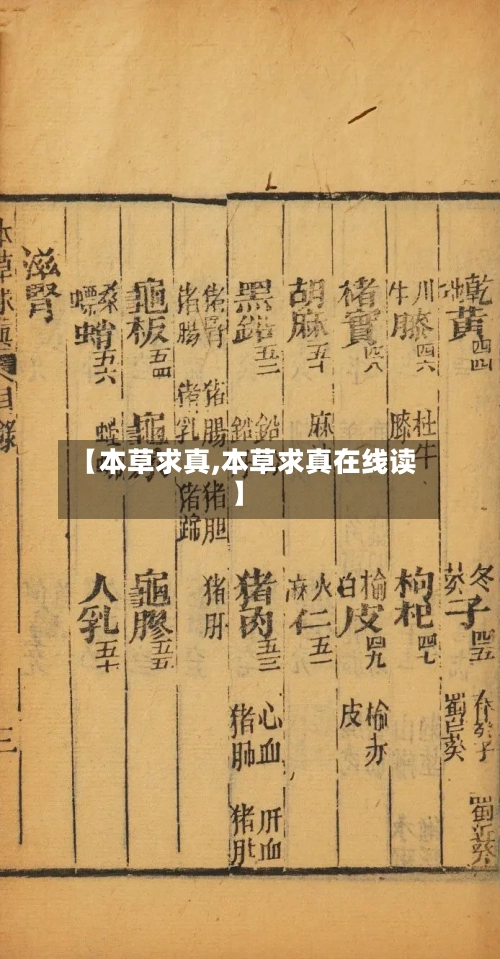 乾地黃四四
冬葵子四五
蜀葵
川牛膝四六
杜牛膝
枸杞四七
楮實四八
榆白皮四九
榆
皮
胡麻五十
麻
火麻仁五一
黑鉛五二
鉛
鉛
豬肉五三
心血
豬肺
肝血
豬
豬腸
豬腸
豬乳
豬胆
豬蹄
豬肝
龜板五四
龜
龜膠五五
桑螵蛸五六
人乳五十
滋腎
本草求真
目錄
三
【本草求真,本草求真在线读
】